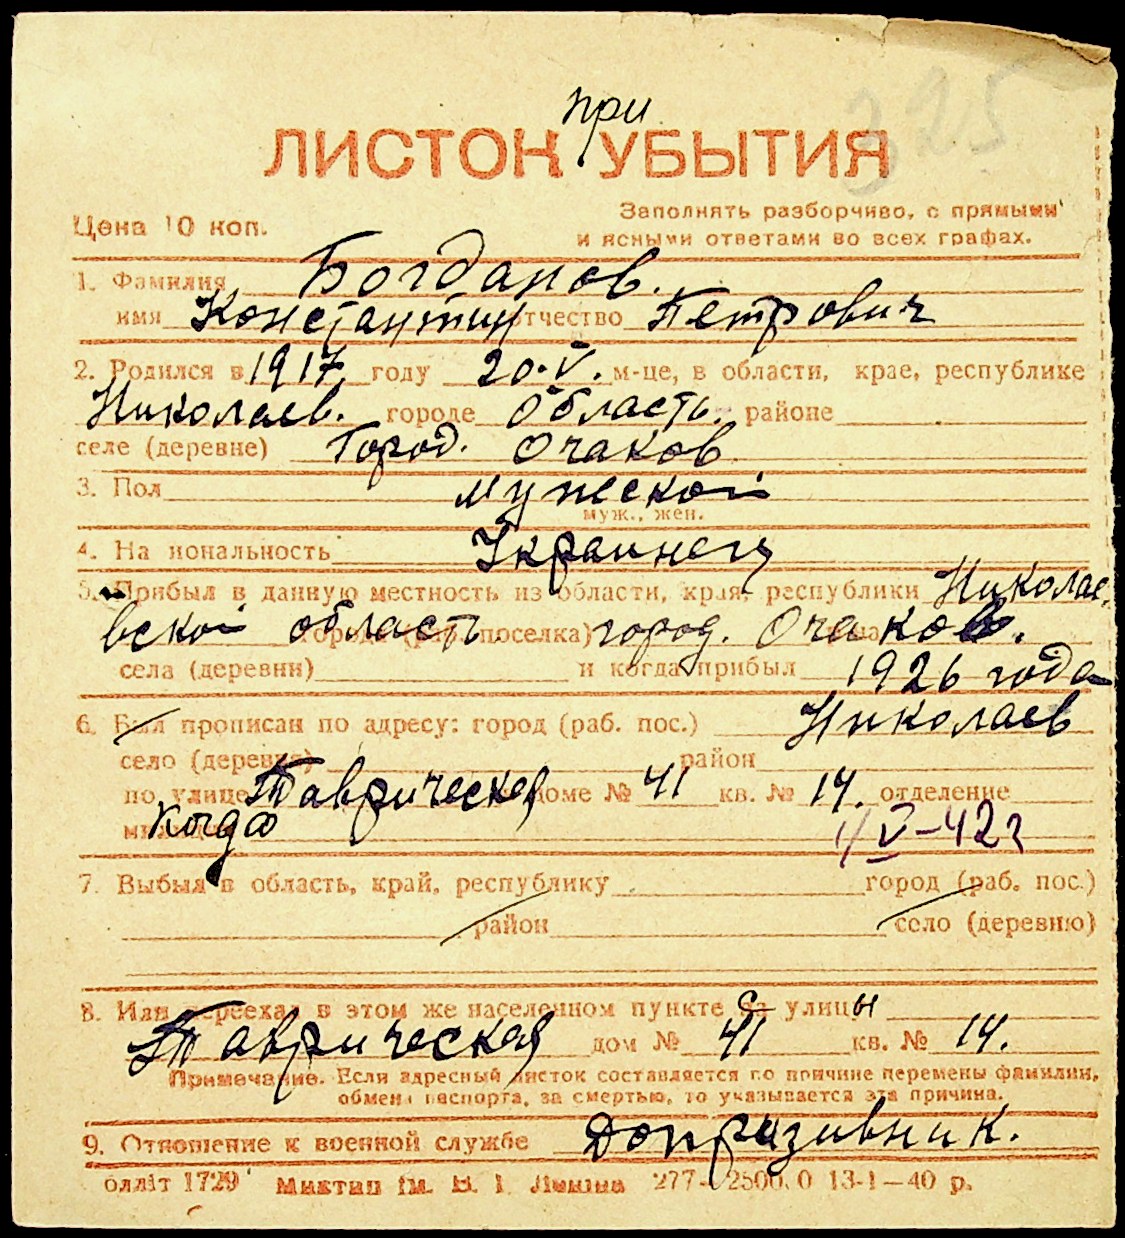 325
при
ЛИСТОК УБЫТИЯ
Цена 10 коп.
Заполнять разборчиво, с прямыми
и ясными ответами во всех графах.
1. Фамилия Богданов.
имя Константин отчество Петрович
2. Родился в 1917 году 20.V. м-це, в области, крае, республике
Николаев. городе область. районе
селе (деревне) Город. Очаков
3. Пол мужской
муж., жен.
4. Национальность Украинец
5. Прибыл в данную местность из области, края, республики Николае-
вской область город. Очаков.
села (деревни) и когда прибыл 1926 года
6. Был прописан по адресу: город (раб. пос.) Николаев
село (деревня) район
по улице Таврическая доме № 41 кв. № 14. отделение
Когда 1/V-42г
7. Выбыл в область, край, республику город (раб. пос.)
район село (деревню)
8. Или переехал в этом же населенном пункте с улицы
Таврическая дом № 41 кв. № 14.
Примечание. Если адресный листок составляется по причине перемены фамилии,
обмена паспорта, за смертью, то указывается эта причина.
9. Отношение к военной службе Допризивник.
блліт 1729 Миктип ім. В. І. Леніна 277-2500.0 13-1-40 р.